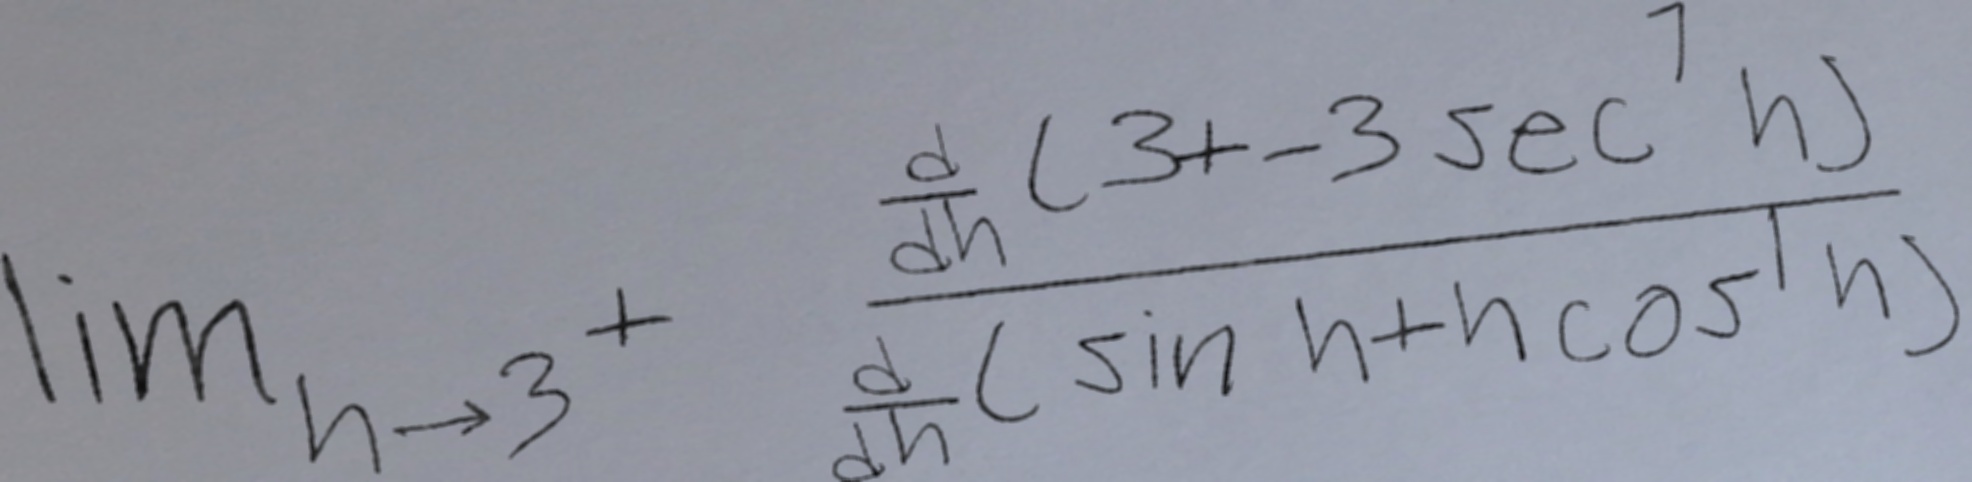 \lim_{h \to 3^+} \frac{\frac{d}{dh}(3+-3\sec^1 h)}{\frac{d}{dh}(\sin h+h\cos^1 h)}